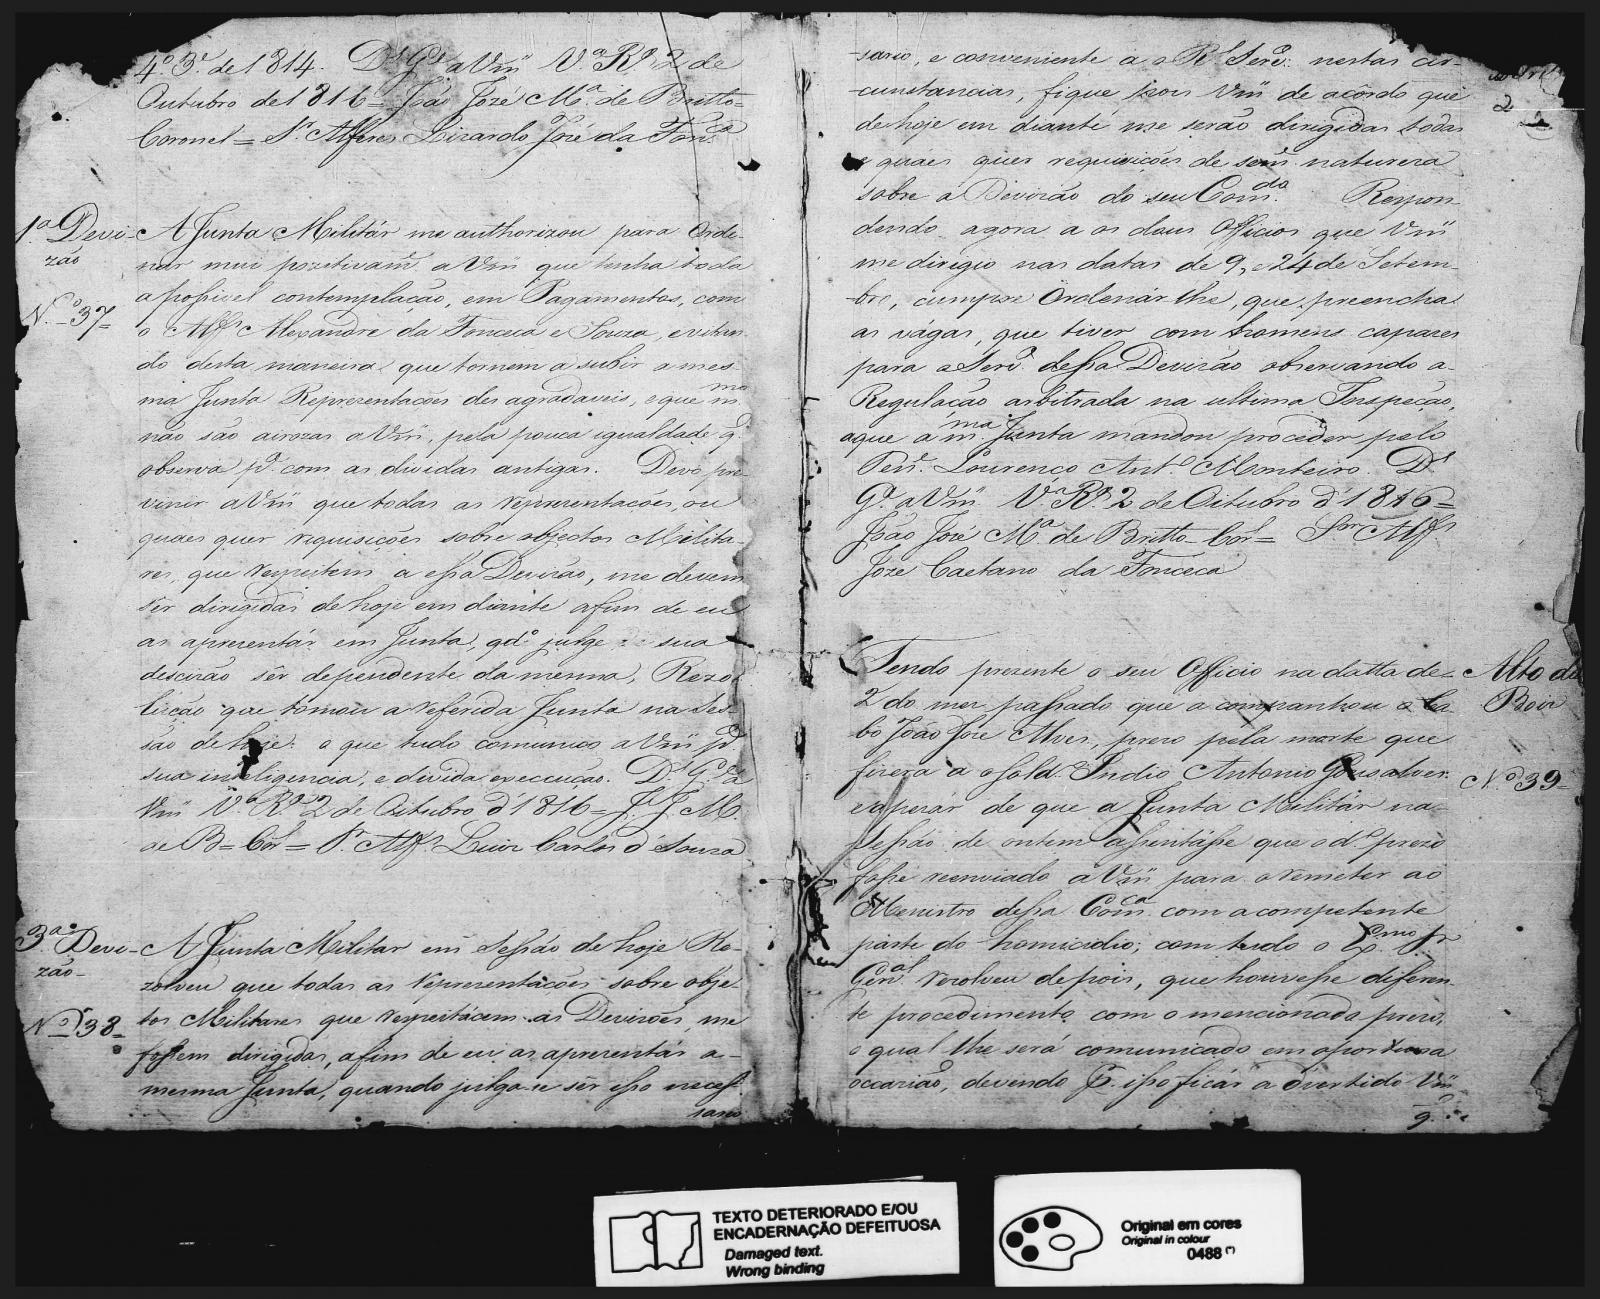 4.º 3.º de 1814. D.s G.e a Vm.ce V.a R.a 2 de
Outubro de 1816 = João Jozé M.a de Britto =
Coronel = S.r Alferes Lizardo José da Fon.ca
1.ª Devi-
zão
N.º 37
A Junta Militár me authorizou para Orde-
nar mui pozetivam.e a Vm.ce que tenha toda
a possivel contemplação, em Pagamentos, com
o Alf.s Alexandre da Fonceca e Souza, evitan-
do desta maneira que tornem a subir a mes-
ma Junta Reprezentacoes desagradaveis, e que m.mo
não são airozas a Vm.ce, pela pouca igualdade q.
observa p.a com as dividas antigas. Devo pre-
vinir a Vm.ce que todas as reprezentacões, ou
quaes quer riquisições sobre objectos Milita-
res, que respeitem a essa Devizão, me devem
ser dirigidas de hoje em diante afim de eu
as aprezentár em Junta, qd.o julge sua
descizão sêr dependente da mesma, Rezo-
lução que tômou a referida Junta na Ses-
são de hoje: o que tudo comunico a Vm.ce p.a
sua inteligencia, e divida execcução. D.s G.e a
Vm.ce V.a R.a 2 de Outubro d'1816 = J. J. M.
de B = Cor.el = S.r Alf.s Luiz Carlos d'Souza
3.ª Devi-
zão
N.º 38
A Junta Militar em Sessão de hoje Re-
zolveu que todas as reprezentàcões sobre obje-
tos Militares que respeitácem as Devizões, me
fossem dirigidas, afim de eu as aprezentár a-
mesma Junta, quando julga-se sêr isso neces-
sario
sario, e conveniente a o R.l Serv.o: nestas cir-
cunstancias, fique pois Vm.ce de acôrdo que
de hoje em diante me serão dirigidas todas
e quaes quer requizições de sem.e natureza
sobre a Devizão do seu Com.do Respon-
dendo agora a os dous Officios que Vm.ce
me dirigio nas datas de 9, e 24 de Setem-
bro, cumpre Ordenár lhe, que preencha
as vágas, que tiver com homens capazes
para o Serv.o dessa Devizão observando a
Regulacão arbitrada na ultima Inspeção,
a que a m.ma Junta mandou procedêr pelo
Ten.e Lourenco Ant.o Monteiro. D.s
G.e a Vm.ce V.a R.a 2 de Outubro d'1816 =
João José M.a de Britto Cor.el = S.r Alf.s
Joze Caetano da Fonceca
2
Alto dos
Bois
N.º 39
Tendo prezente o seu Officio na datta de
2 do mez passado que acompanhou o Ca-
bo João José Alves, prezo pela morte que
fizera a o Sold.o Indio Antonio Gonsalves:
de que a Junta Militár na
Sessão de ontem assentásse que o d.o prezo
fosse reenviado a Vm.ce para o remeter ao
Menistro dessa Com.ca com a competente
parte do homicidio; com tudo o Ex.mo Sr.
Gen.al rezolveu depois, que houvesse diferen-
te procedimento com o mencionado prezo,
o qual lhe será comunicado em oportuna
occazião, devendo p. isso ficár advertido Vm.ce
q.e
TEXTO DETERIORADO E/OU
ENCADERNAÇÃO DEFEITUOSA
Damaged text.
Wrong binding
Original em cores
Original in colour
0488 (*)